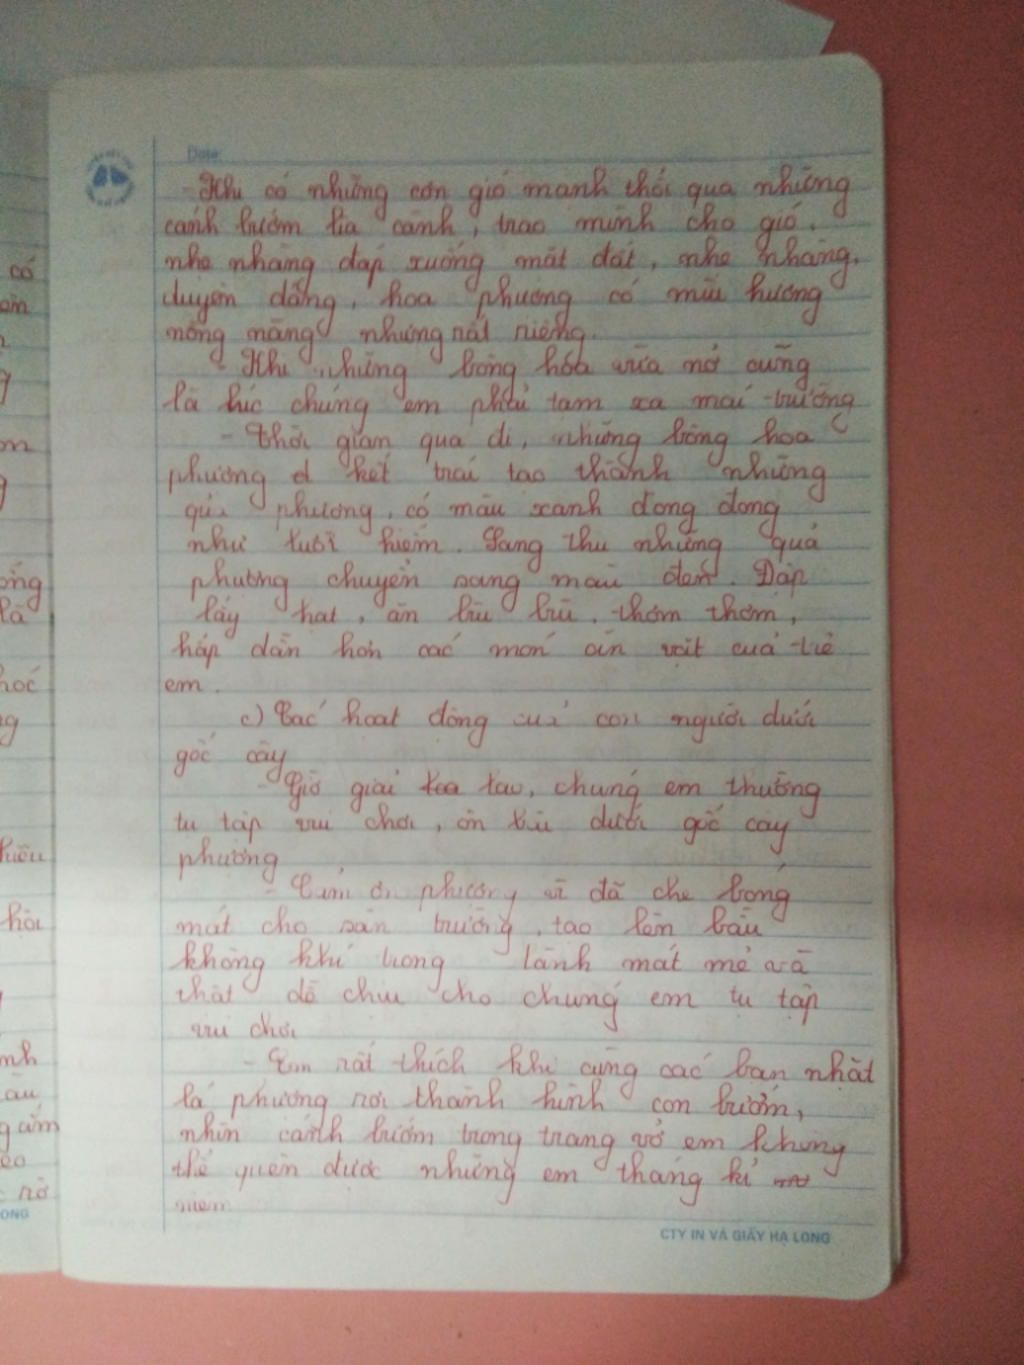 Date:
- Khi có những cơn gió mạnh thổi qua những
cánh bướm lìa cành, trao mình cho gió.
nhẹ nhàng đáp xuống mặt đất, nhẹ nhàng,
duyên dáng, hoa phượng có mùi hương
nồng nàng nhưng rất riêng.
- Khi những bông hoa vừa nở cũng
là lúc chúng em phải tạm xa mái trường
- Thời gian qua đi, những bông hoa
phượng kết trái tạo thành những
quả phượng, có màu xanh đong đong
như lưỡi liềm. Sang thu những quả
phượng chuyển sang màu đen. Đập
lấy hạt, ăn bùi bùi, thơm thơm,
hấp dẫn hơn các món ăn vặt của trẻ
em.
c) Các hoạt động của con người dưới
gốc cây
- Giờ giải lao, chúng em thường
tụ tập vui chơi, ôn bài dưới gốc cây
phượng
- Cảm ơn phượng vĩ đã che bóng
mát cho sân trường, tạo lên bầu
không khí trong lành mát mẻ và
thật dễ chịu cho chúng em tụ tập
vui chơi
- Em rất thích khi cùng các bạn nhặt
lá phượng rơi thành hình con bướm,
nhìn cánh bướm trong trang vở em không
thể quên được những em tháng kỉ
niệm
CTY IN VÀ GIẤY HẠ LONG
có
ống
là
học
hiều
hơi
nh
g ấm
ONG